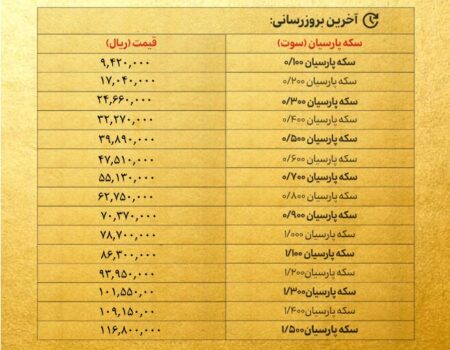 آخرین بروزرسانی:
سکه پارسیان (سوت) قیمت (ریال)
سکه پارسیان ۰/۱۰۰ ۹,۴۲۰,۰۰۰
سکه پارسیان ۰/۲۰۰ ۱۷,۰۴۰,۰۰۰
سکه پارسیان ۰/۳۰۰ ۲۴,۶۶۰,۰۰۰
سکه پارسیان ۰/۴۰۰ ۳۲,۲۷۰,۰۰۰
سکه پارسیان ۰/۵۰۰ ۳۹,۸۹۰,۰۰۰
سکه پارسیان ۰/۶۰۰ ۴۷,۵۱۰,۰۰۰
سکه پارسیان ۰/۷۰۰ ۵۵,۱۳۰,۰۰۰
سکه پارسیان ۰/۸۰۰ ۶۲,۷۵۰,۰۰۰
سکه پارسیان ۰/۹۰۰ ۷۰,۳۷۰,۰۰۰
سکه پارسیان ۱/۰۰۰ ۷۸,۷۰۰,۰۰۰
سکه پارسیان ۱/۱۰۰ ۸۶,۳۰۰,۰۰۰
سکه پارسیان۱/۲۰۰ ۹۳,۹۵۰,۰۰۰
سکه پارسیان۱/۳۰۰ ۱۰۱,۵۵۰,۰۰
سکه پارسیان۱/۴۰۰ ۱۰۹,۱۵۰,۰۰
سکه پارسیان۱/۵۰۰ ۱۱۶,۸۰۰,۰۰۰